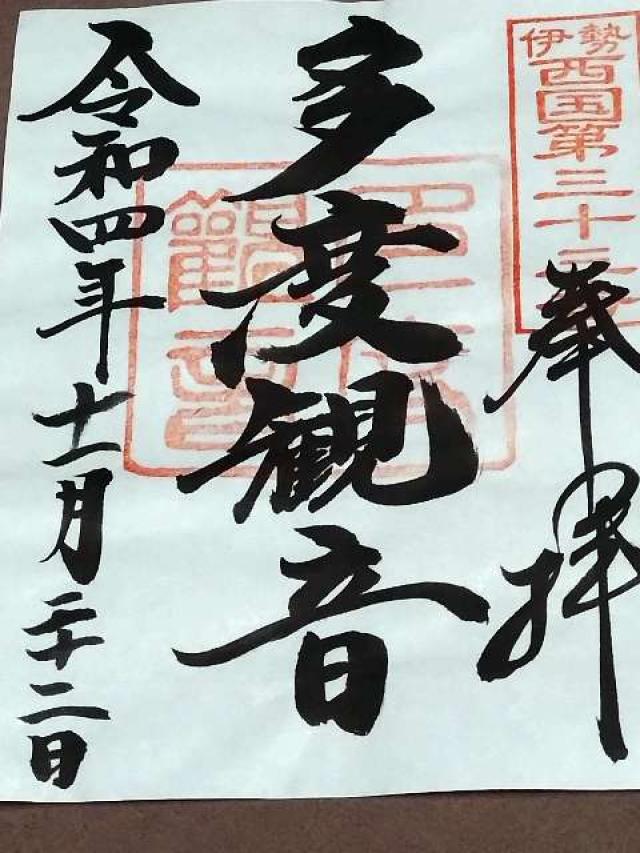 伊勢
西国第三十三
奉拝
多度観音
觀音
令和四年十一月二十二日